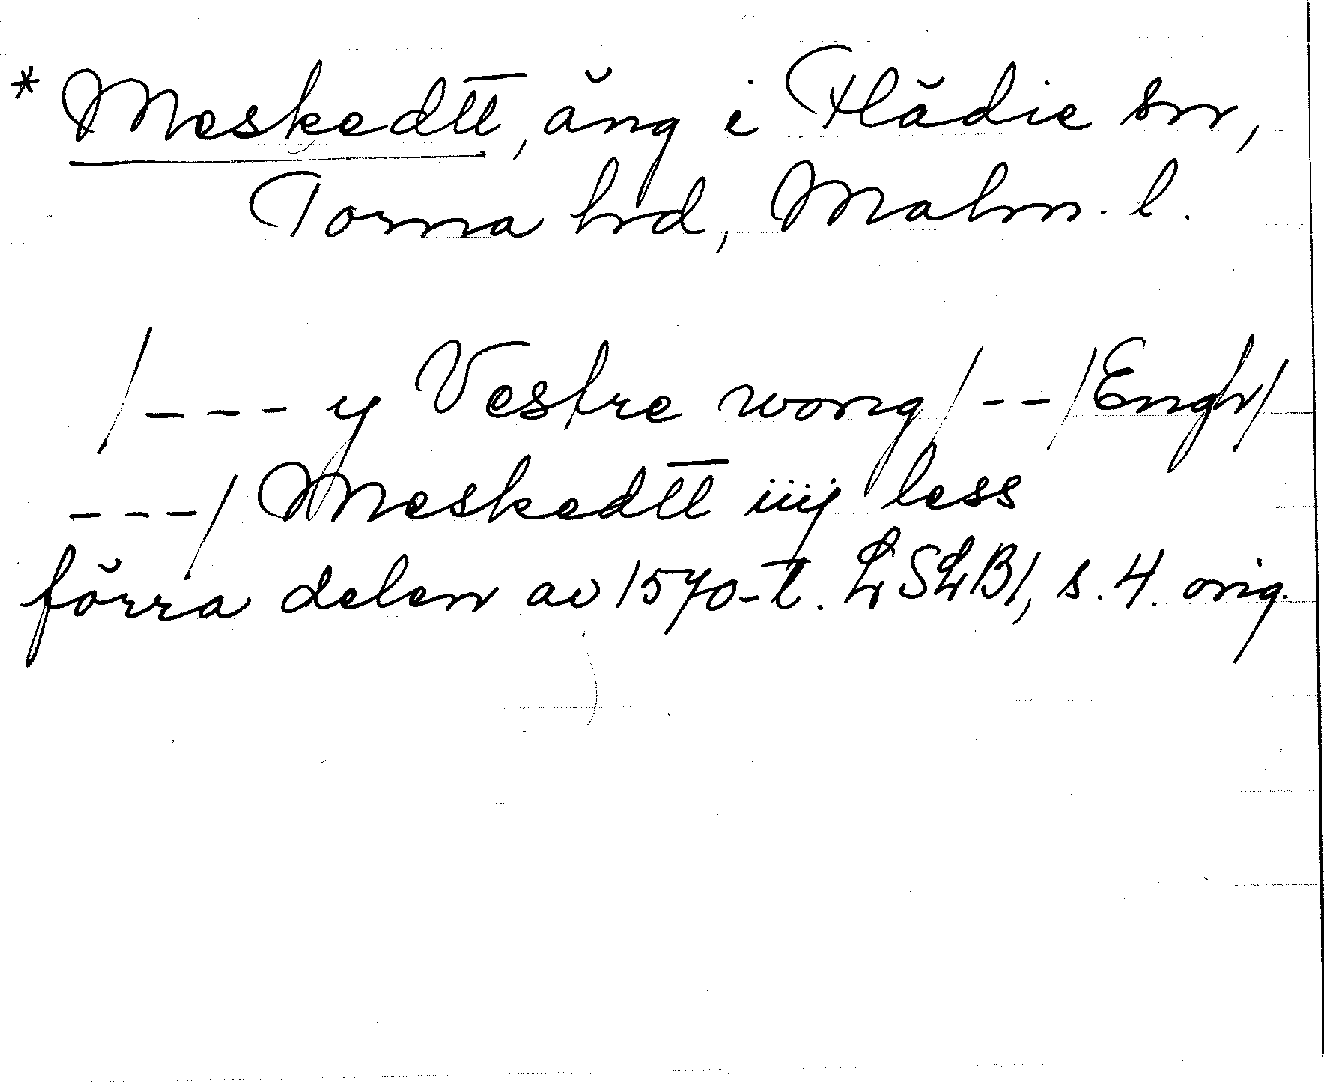 * Meskedtt, äng i Flädie sn,
Torna hrd, Malm. l.
/--- y Vestre wong/--/Engh/
---/ Meskedtt iiij less
förra delen av 1570-t. LSLB1, s. 4. orig.